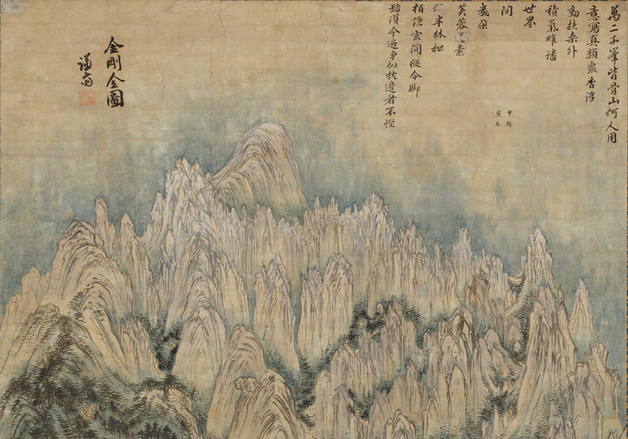 萬二千峯皆骨山何人用
意寫真顔衆香浮
動扶桑外
積氣雄蟠
世界
間
幾朶
芙蓉素
半林松
栢隱玄關從令脚
踏須今遍爭似枕邊看不慳
甲寅
冬題
金剛全圖
謙齋